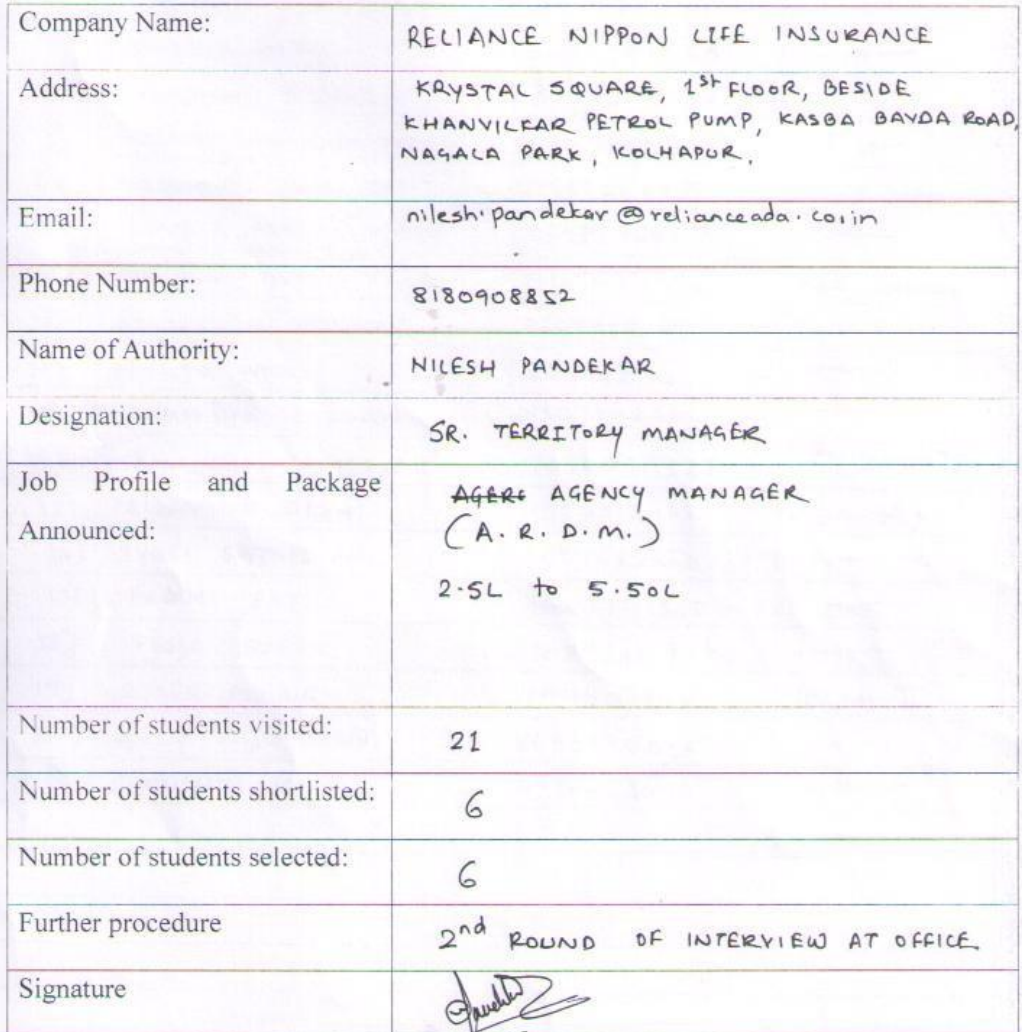 Company Name: RELIANCE NIPPON LIFE INSURANCE
Address: KRYSTAL SQUARE, 1st FLOOR, BESIDE
KHANVILKAR PETROL PUMP, KASBA BAVDA ROAD,
NAGALA PARK, KOLHAPUR.
Email: nilesh.pandekar@relianceada.co.in
Phone Number: 8180908852
Name of Authority: NILESH PANDEKAR
Designation: SR. TERRITORY MANAGER
Job Profile and Package AGENCY MANAGER
Announced: (A.R.D.M.)
2.5L to 5.50L
Number of students visited: 21
Number of students shortlisted: 6
Number of students selected: 6
Further procedure 2nd ROUND OF INTERVIEW AT OFFICE
Signature